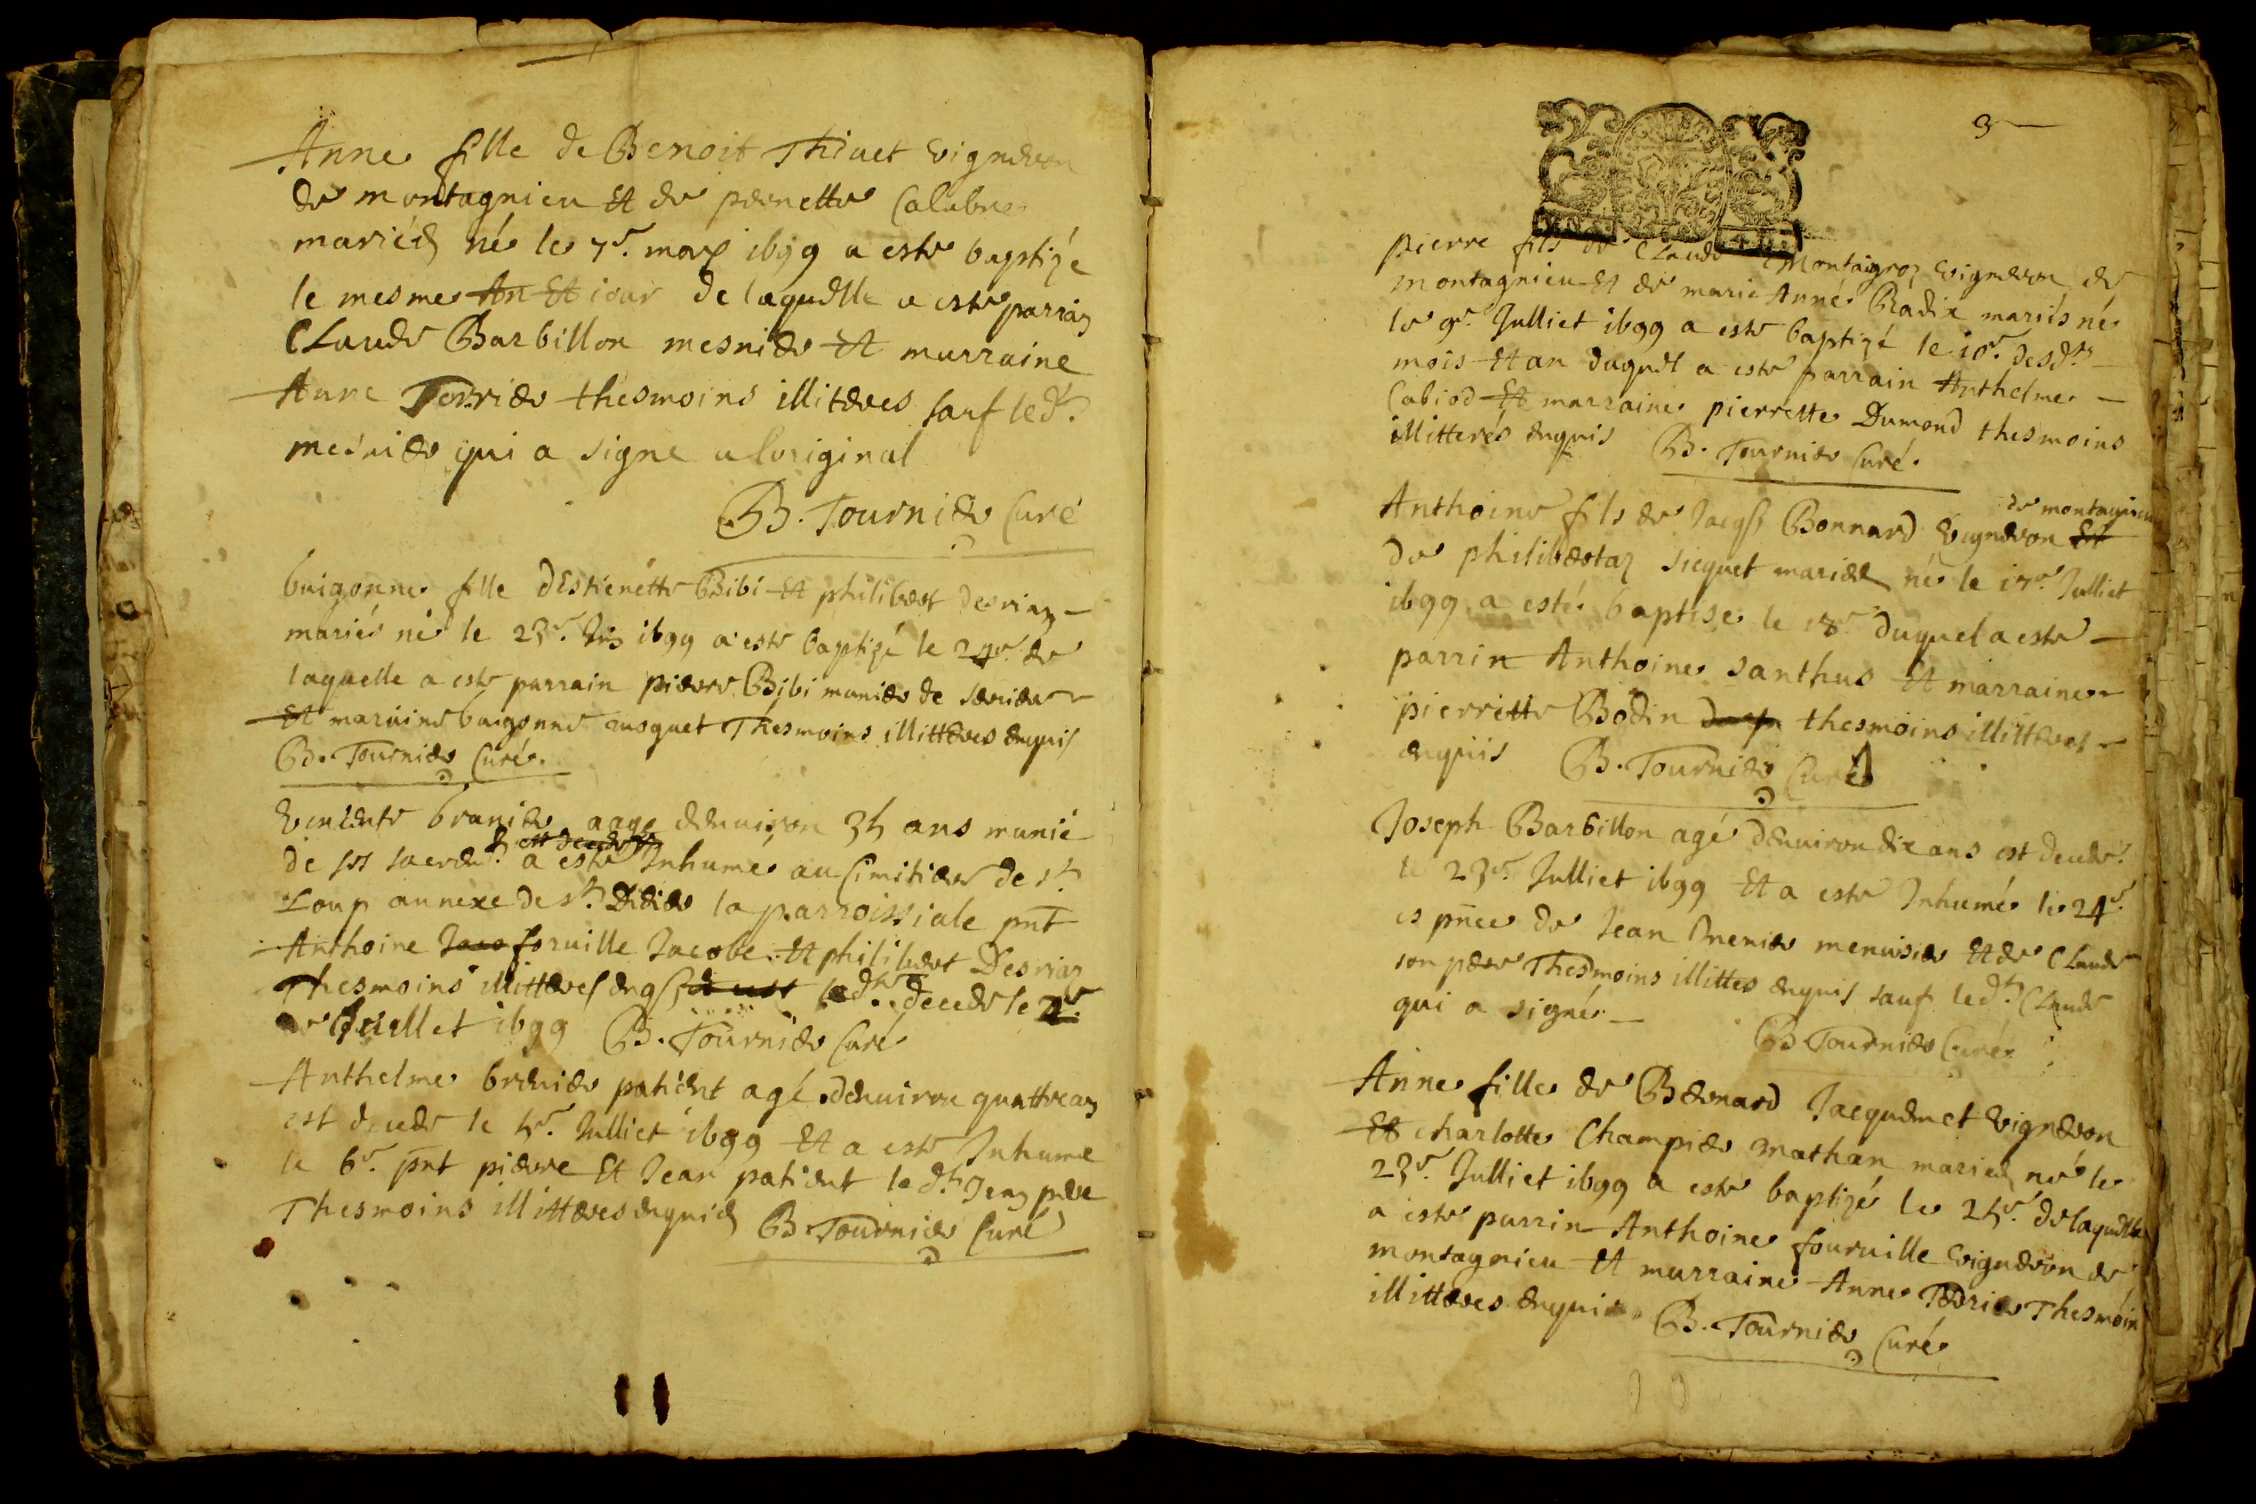 Anne fille de Benoit Thivet vigneron
de montagnieu Et de pernette Calabre
mariés né le 7e. may 1699 a este baptizé
le mesme An Et iour de laquelle a este parrain
CLaude Barbillon mesnier Et marraine
Anne Terrier thesmoins illiteres sauf led.
mesnier qui a signe a loriginal
B. Tournier Curé
buigonne fille dEstienette Bibi Et philibert Derriaz
mariés né le 23e. 1699 a este baptizé le 24e. de
laquelle a este parrain pierre Bibi munier de
Et maraine buigonne ausquet Thesmoins illitteres enquis
B. Tournier Curé.
aage denuiron 35 ans munié
est decede
de ses a este Inhumé au Cimitier de st.
Loup annexe de st. Didier la parroissiale pnt
Anthoine foruille Jacobe Et philibert Derriaz
Thesmoins illitteres decede le 4e
Juillet 1699 B. Tournier Curé
Anthelme brenier patient agé denuiron quattre ans
est decede le 5e. Julliet 1699 Et a este Inhumé
le 6e. pnt pierre Et Jean patient led. Jean pere
Thesmoins illitteres enquis B. Tournier Curé
3
pierre fils de CLaude Montaigroz vigneron de
montagnieu Et de marie Anne Radix mariés né
le 9e. Julliet 1699 a este baptizé le 10e. desd.
mois Et an duquel a este parrain Anthelme
Cabiod Et marraine pierrette Dumond thesmoins
illitteres enquis B. Tournier Curé.
de montagnieu
Anthoine fils de Jacqs Bonnard vigneron Et
de philiberta sicquet mariés né le 17e. Julliet
1699 a esté baptise le 18e. duquel a este
parrin Anthoine santhus Et marraine
pierrette Bodin thesmoins illitteres
enquis B. Tournier Curé
Joseph Barbillon agé denuiron dix ans est decede
le 23e. Julliet 1699 Et a este Inhumé le 24e.
es pnce de Jean menuisier Et de CLaude
son pere Thesmoins illittes enquis sauf led. CLaude
qui a signé
B Tournier Curé
Anne fille de Bernard Jacquemet vigneron
Et charlotte Champier mathan mariés né le
23e. Julliet 1699 a este baptizé le 25e. de laquelle
a este parrin Anthoine fouruille vigneron de
montagnieu Et marraine Anne Terrier Thesmoin
illitteres enquis B. Tournier Curé